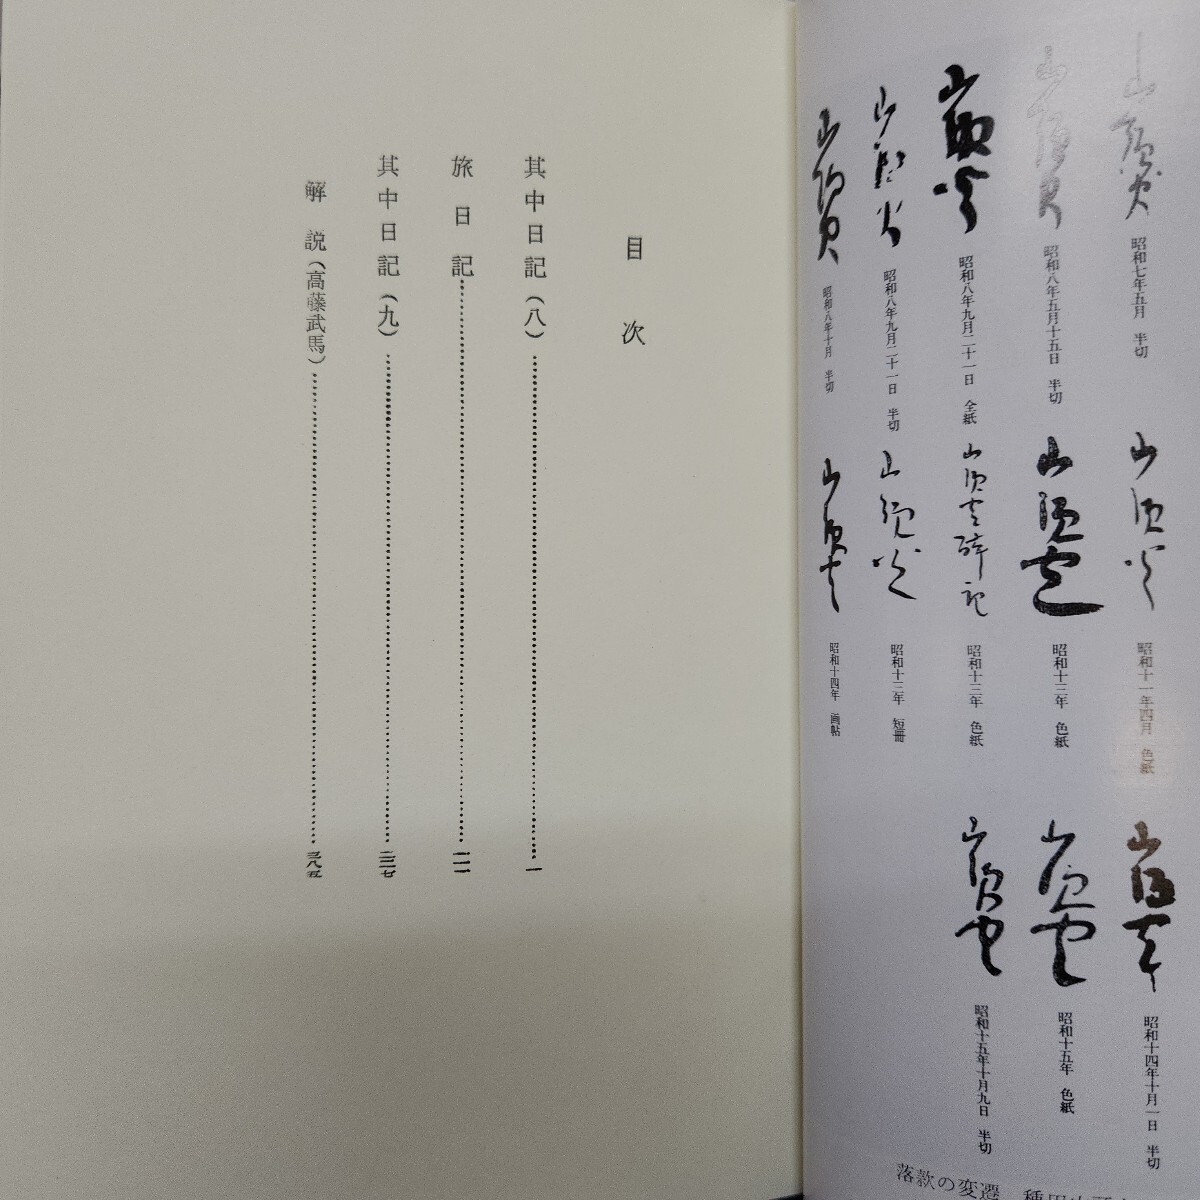 山頭火
昭和七年五月　半切
山頭火
昭和八年五月十五日　半切
山頭火
昭和八年九月二十一日　全紙
山頭火
昭和八年九月二十一日　半切
山頭火
昭和八年十月　半切
山頭火
昭和十一年四月　色紙
山頭火
昭和十三年　色紙
山頭火
昭和十三年　色紙
山頭火
昭和十三年　短冊
山頭火
昭和十四年　画帖
山頭火
昭和十四年十月一日　半切
山頭火
昭和十五年　色紙
山頭火
昭和十五年十月九日　半切
落款の変遷　種田山頭
目次
其中日記（八）……一
旅日記……
其中日記（九）……
解説（高藤武馬）……三八五